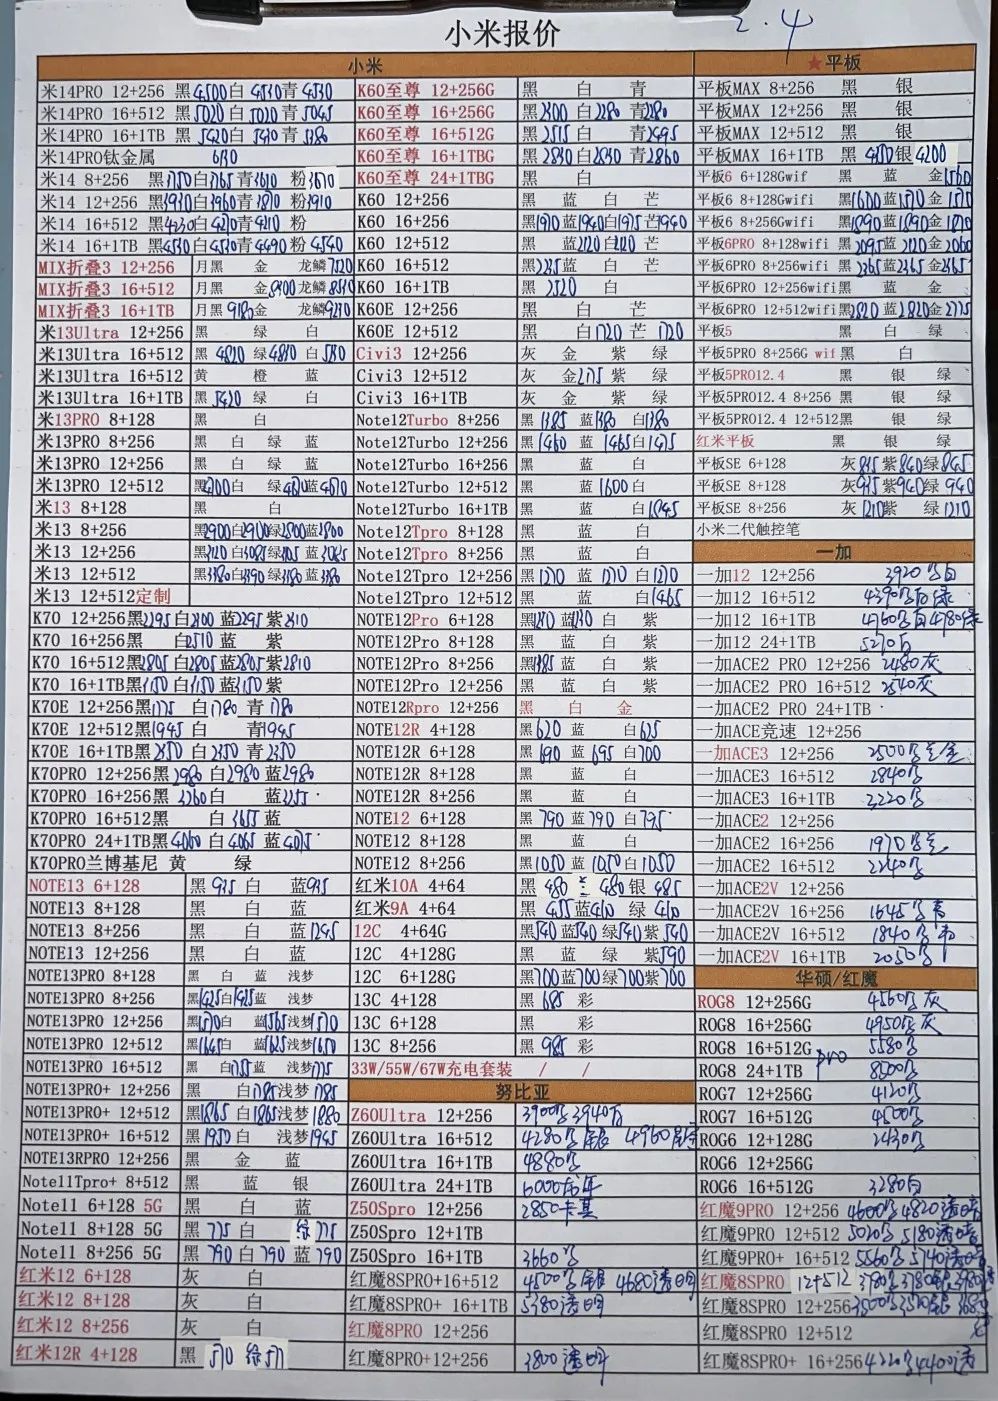 2.4
小米报价
小米
米14PRO 12+256 黑4500白 4510青4530
米14PRO 16+512 黑5020白 5020青5045
米14PRO 16+1TB 黑 5420白 5430青
米14PRO钛金属
米14 8+256 黑 白 青 粉3670
米14 12+256 黑3930白3960青3870粉3910
米14 16+512 黑4230白4270青4210粉
米14 16+1TB 黑4530白4530青4490粉4540
MIX折叠3 12+256 月黑 金 龙鳞7520
MIX折叠3 16+512 月黑 金8400龙鳞
MIX折叠3 16+1TB 月黑9180金 龙鳞9270
米13Ultra 12+256 黑 绿 白
米13Ultra 16+512 黑 4820 绿 白
米13Ultra 16+512 黄 橙 蓝
米13Ultra 16+1TB 黑 5420 绿 白
米13PRO 8+128 黑 白
米13PRO 8+256 黑 白 绿 蓝
米13PRO 12+256 黑 白 绿 蓝
米13PRO 12+512 黑 白 绿 蓝
米13 8+128 黑 白
米13 8+256 黑2900白2900绿2800蓝2800
米13 12+256 黑 白 绿 蓝
米13 12+512 黑 白 绿 蓝
米13 12+512定制
K70 12+256黑2295白2300蓝2295紫2310
K70 16+256黑 白2510蓝 紫
K70 16+512黑2805白2805蓝2805紫2810
K70 16+1TB黑3150白3150蓝3150紫
K70E 12+256黑1775 白1780 青1780
K70E 12+512黑1945 白 青1945
K70E 16+1TB黑 白 青
K70PRO 12+256黑2980白2980蓝2980
K70PRO 16+256黑3260白 蓝3255
K70PRO 16+512黑 白3655蓝
K70PRO 24+1TB黑4060白4065蓝4075
K70PRO兰博基尼 黄 绿
NOTE13 6+128 黑 935 白 蓝935
NOTE13 8+128 黑 白 蓝
NOTE13 8+256 黑 白 蓝1245
NOTE13 12+256 黑 白 蓝
NOTE13PRO 8+128 黑 白 蓝 浅梦
NOTE13PRO 8+256 黑1425白1425蓝 浅梦
NOTE13PRO 12+256 黑1570白 蓝1565浅梦1570
NOTE13PRO 12+512 黑1645白 蓝1625浅梦1650
NOTE13PRO 16+512 黑 白1755蓝 浅梦1755
NOTE13PRO+ 12+256 黑 白1785浅梦1785
NOTE13PRO+ 12+512 黑1865白1865浅梦1880
NOTE13PRO+ 16+512 黑1950白 浅梦1945
NOTE13RPRO 12+256 黑 金 蓝
Note11Tpro+ 8+512 黑 蓝 银
Note11 6+128 5G 黑 白 蓝
Note11 8+128 5G 黑 775 白 绿775
Note11 8+256 5G 黑 790白790蓝790
红米12 6+128 灰 白
红米12 8+128 灰 白
红米12 8+256 灰 白
红米12R 4+128 黑 570 绿571
K60至尊 12+256G 黑 白 青
K60至尊 16+256G 黑2300白2280青2280
K60至尊 16+512G 黑2515白 青2495
K60至尊 16+1TBG 黑2830白2830青2860
K60至尊 24+1TBG 黑 白
K60 12+256 黑 蓝 白 芒
K60 16+256 黑1970蓝1940白1975芒1940
K60 12+512 黑 蓝2120白2120芒
K60 16+512 黑 蓝 白 芒
K60 16+1TB 黑2520 白
K60E 12+256 黑 白 芒
K60E 12+512 黑 白1720芒1720
Civi3 12+256 灰 金 紫 绿
Civi3 12+512 灰 金 紫 绿
Civi3 16+1TB 灰 金 紫 绿
Note12Turbo 8+256 黑1385蓝1380白1380
Note12Turbo 12+256 黑1460蓝1465白1475
Note12Turbo 16+256 黑 蓝 白
Note12Turbo 12+512 黑 蓝1600白
Note12Turbo 16+1TB 黑 蓝 白1845
Note12Tpro 8+128 黑 蓝 白
Note12Tpro 8+256 黑 蓝 白
Note12Tpro 12+256 黑1270蓝1270白1270
Note12Tpro 12+512 黑 蓝 白1465
NOTE12Pro 6+128 黑 蓝 白 紫
NOTE12Pro 8+128 黑 蓝 白 紫
NOTE12Pro 8+256 黑 蓝 白 紫
NOTE12Pro 12+256 黑 蓝 白 紫
NOTE12Rpro 12+256 黑 白 金
NOTE12R 4+128 黑620 蓝 白625
NOTE12R 6+128 黑690蓝695白700
NOTE12R 8+128 黑 蓝 白
NOTE12R 8+256 黑 蓝 白
NOTE12 6+128 黑790蓝790白795
NOTE12 8+128 黑 蓝 白
NOTE12 8+256 黑1050蓝1050白1050
红米10A 4+64 黑 480 480银 485
红米9A 4+64 黑 455蓝410 绿 410
12C 4+64G 黑540蓝540绿540紫540
12C 4+128G 黑 蓝 绿 紫590
12C 6+128G 黑700蓝700绿700紫700
13C 4+128 黑 685 彩
13C 6+128 黑 彩
13C 8+256 黑 985 彩
33W/55W/67W充电套装 / /
努比亚
Z60Ultra 12+256 3900
Z60Ultra 16+512 4280
Z60Ultra 16+1TB 4880
Z60Ultra 24+1TB 6000龙年
Z50Spro 12+256 2850卡其
Z50Spro 12+1TB
Z50Spro 16+1TB 3660
红魔8SPRO+16+512 4500 银 4680透明
红魔8SPRO+ 16+1TB 5380透明
红魔8PRO 12+256
红魔8PRO+12+256 3800 透明
★平板
平板MAX 8+256 黑 银
平板MAX 12+256 黑 银
平板MAX 12+512 黑 银
平板MAX 16+1TB 黑 银4200
平板6 6+128Gwif 黑 蓝 金1560
平板6 8+128Gwifi 黑1600蓝1570金1570
平板6 8+256Gwifi 黑1890蓝1890金1870
平板6PRO 8+128wifi 黑2095蓝2120金2060
平板6PRO 8+256wifi 黑2265蓝2265金2265
平板6PRO 12+256wifi黑 蓝 金
平板6PRO 12+512wifi黑2820蓝2820金2775
平板5 黑 白 绿
平板5PRO 8+256G wif黑 白
平板5PRO12.4 黑 银 绿
平板5PRO12.4 8+256 黑 银 绿
平板5PRO12.4 12+512黑 银 绿
红米平板 黑 银 绿
平板SE 6+128 灰835紫840绿845
平板SE 8+128 灰935紫940绿940
平板SE 8+256 灰1210紫 绿1210
小米二代触控笔
一加
一加12 12+256 3920 白
一加12 16+512 4390
一加12 16+1TB 4760
一加12 24+1TB
一加ACE2 PRO 12+256 2480灰
一加ACE2 PRO 16+512 2540灰
一加ACE2 PRO 24+1TB
一加ACE竞速 12+256
一加ACE3 12+256 2500
一加ACE3 16+512 2840
一加ACE3 16+1TB 3220
一加ACE2 12+256
一加ACE2 16+256 1970
一加ACE2 16+512 2240
一加ACE2V 12+256
一加ACE2V 16+256 1645
一加ACE2V 16+512 1840
一加ACE2V 16+1TB 2050
华硕/红魔
ROG8 12+256G 4560 灰
ROG8 16+256G 4950 灰
ROG8 16+512G pro 5580
ROG8 24+1TB 8500
ROG7 12+256G 4120
ROG7 16+512G 4500
ROG6 12+128G 2430
ROG6 12+256G
ROG6 16+512G 3280白
红魔9PRO 12+256 4600 4820透
红魔9PRO 12+512 5020 5180透
红魔9PRO+ 16+512 5560 5740透
红魔8SPRO 12+512 3780
红魔8SPRO 12+256 3500
红魔8SPRO 12+512
红魔8SPRO+ 16+256 4400透